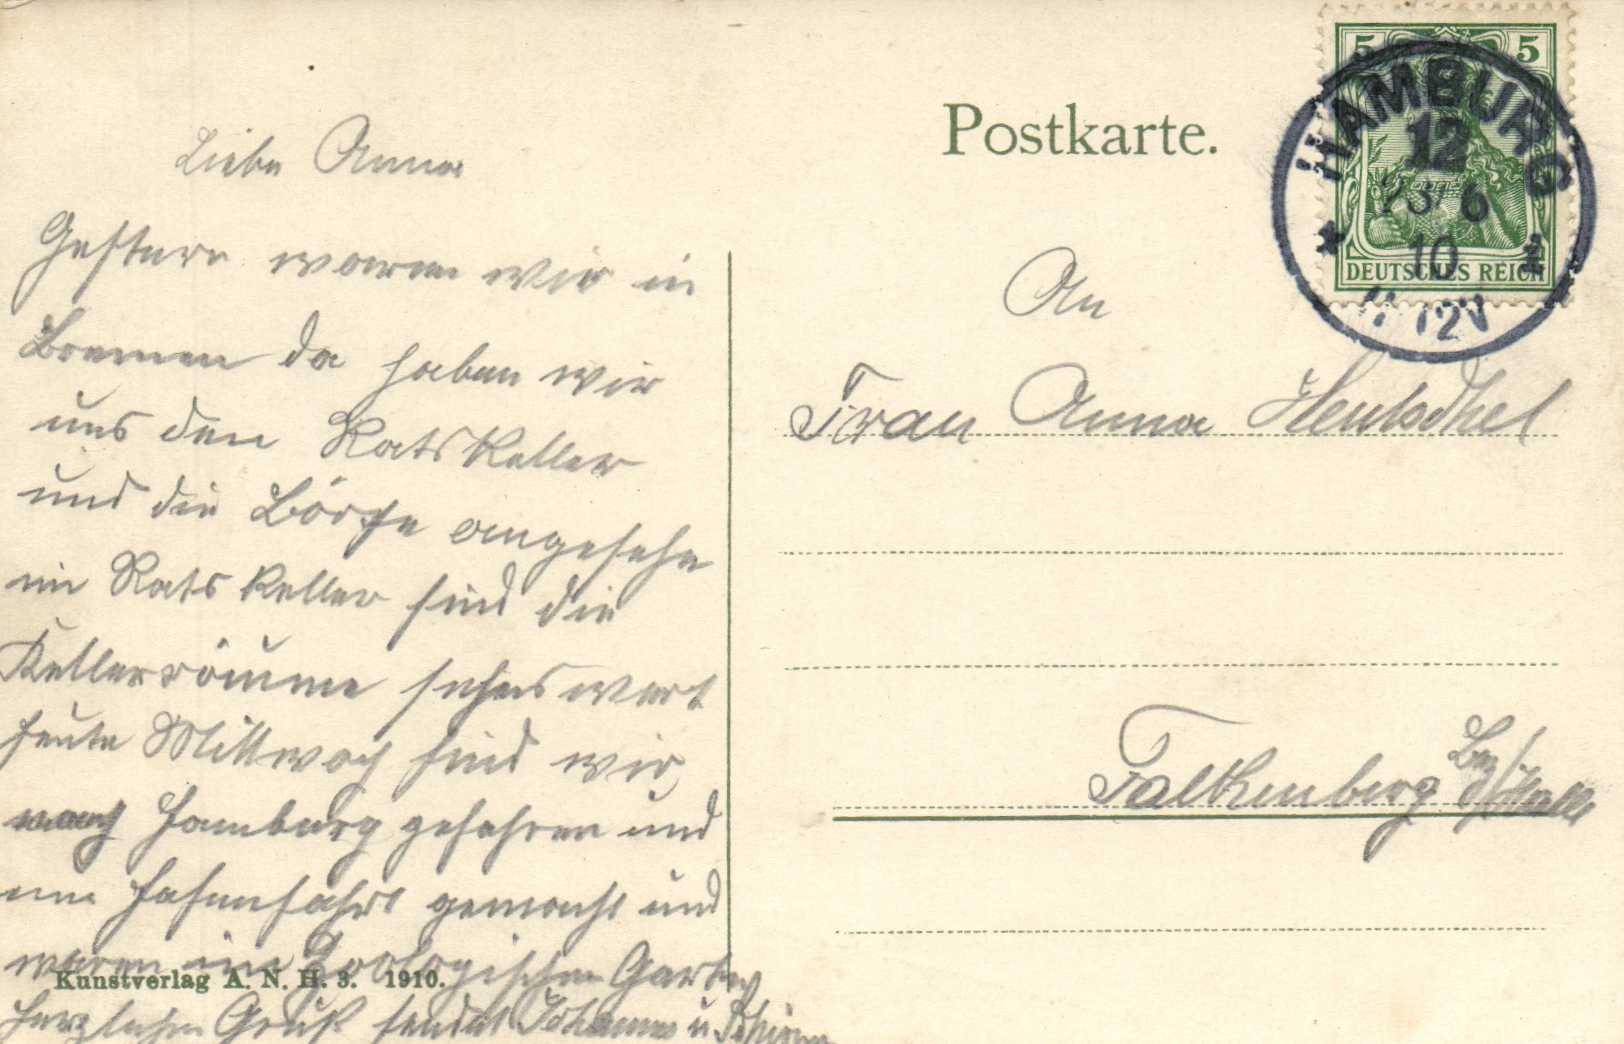 Liebe Anna
Gestern waren wir in
Bremen da haben wir
uns den Rats Keller
und die Börse angesehn
im Rats Keller sind die
Kellerräume sehns wert
heute Mittwoch sind wir
nach Hamburg gefahren und
eine Hafenfahrt gemacht und
waren im Zoologischen Garten
Herzlichen Gruß sendet Johanne u.
Kunstverlag A. N. H. 3. 1910.
Postkarte.
5 5
DEUTSCHES REICH
HAMBURG
12
10
12V
An
Frau Anna Hentschel
Falkenberg Bez/Halle